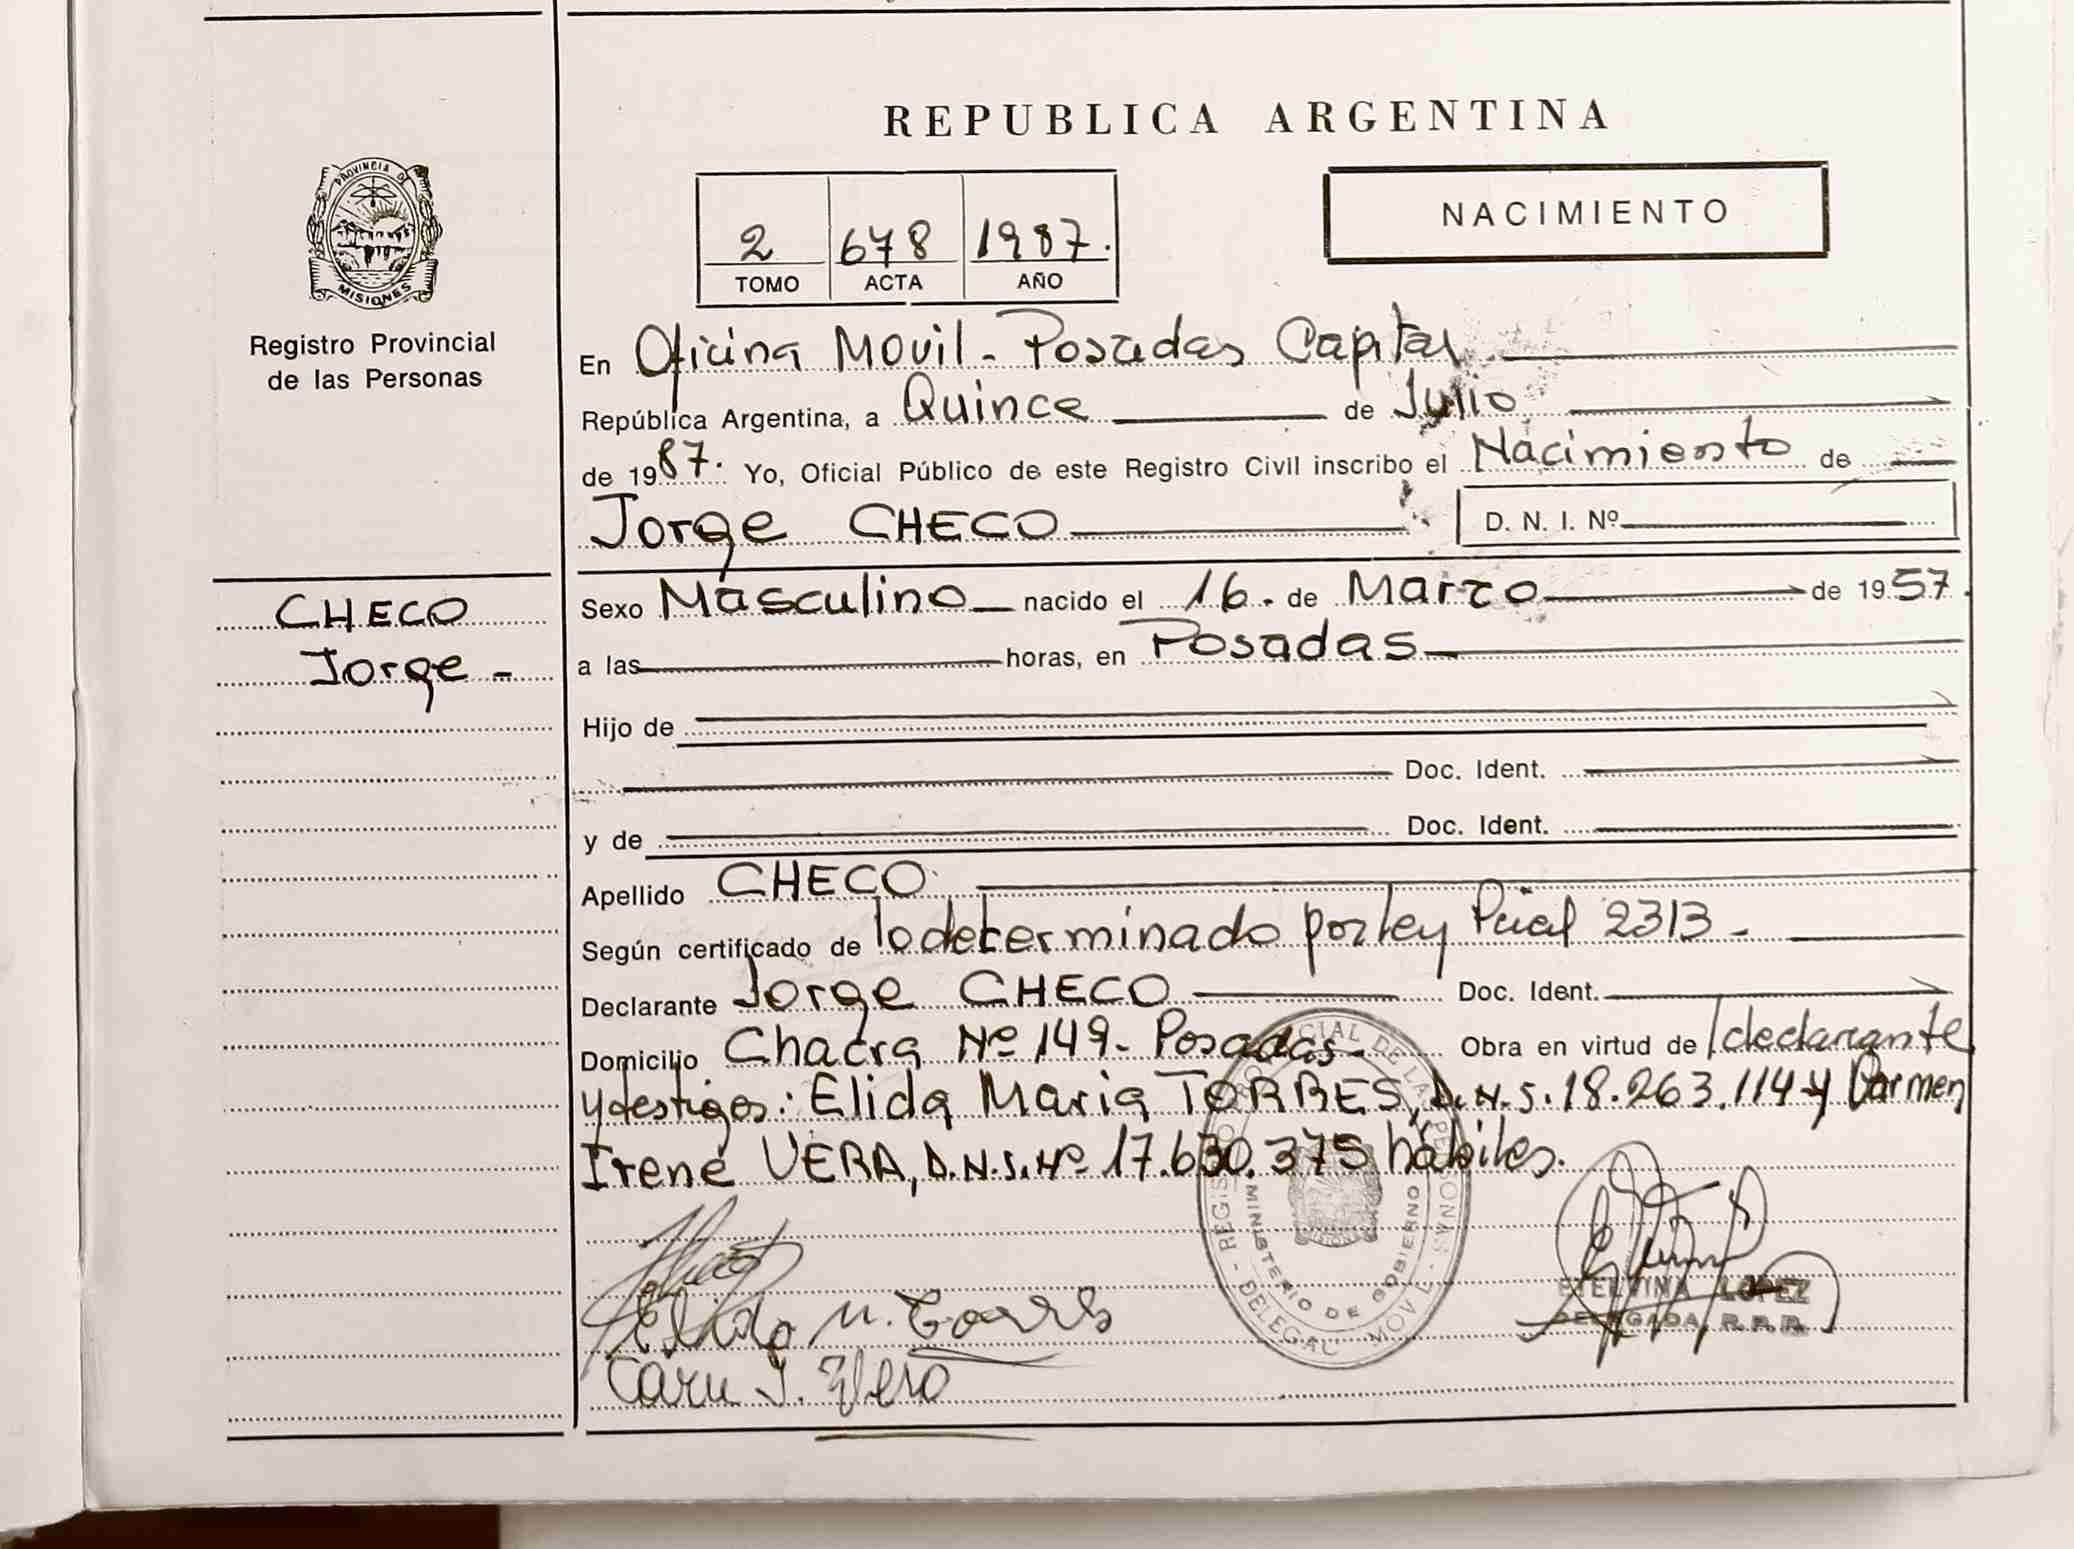 REPUBLICA ARGENTINA
NACIMIENTO
2 678 1987.
TOMO ACTA AÑO
PROVINCIA DE
MISIONES
Registro Provincial
de las Personas
En Oficina Movil - Posadas Capital
República Argentina, a Quince de Julio
de 1987. Yo, Oficial Público de este Registro Civil inscribo el Nacimiento de
Jorge CHECO D. N. I. Nº
CHECO
Jorge -
Sexo Masculino nacido el 16. de Marzo de 1957.
a las horas, en Posadas
Hijo de
Doc. Ident.
y de Doc. Ident.
Apellido CHECO
Según certificado de lo determinado por ley Pcial 2313 -
Declarante Jorge CHECO Doc. Ident.
Domicilio Chacra Nº 149 - Posadas - Obra en virtud de l declarante
y testigos: Elida Maria TORRES, D.N.I. 18.263.114 y Carmen
Irene VERA, D.N.I. Nº 17.630.375 hábiles.
REGISTRO PROVINCIAL DE LAS PERSONAS
MINISTERIO DE GOBIERNO
MISIONES
MOVIL
Elida M. Torres
ETELVINA LOPEZ
DELEGADA R.P.P.
J. Vera